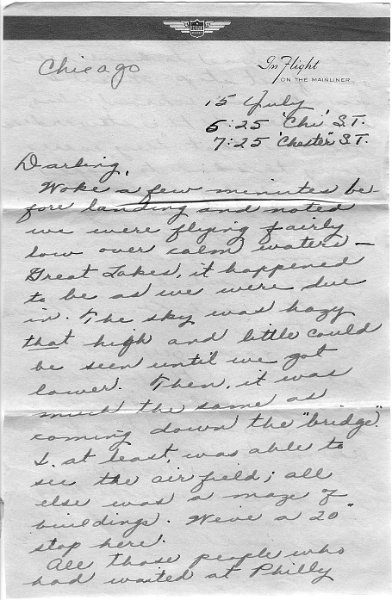 In Flight
ON THE MAINLINER
Chicago
15 July
6:25 "Chi" S.T.
7:25 "Chester" S.T.
Darling,
Woke a few minutes be-
fore landing and noted
we were flying fairly
low over calm waters –
Great Lakes, it happened
to be as we were due
in. The sky was hazy
that high and little could
be seen until we got
lower. Then, it was
much the same as
coming down the "bridge".
I, at least, was able to
see the air field; all
else was a maze of
buildings. We've a 20"
stop here.
All those people who
had waited at Philly